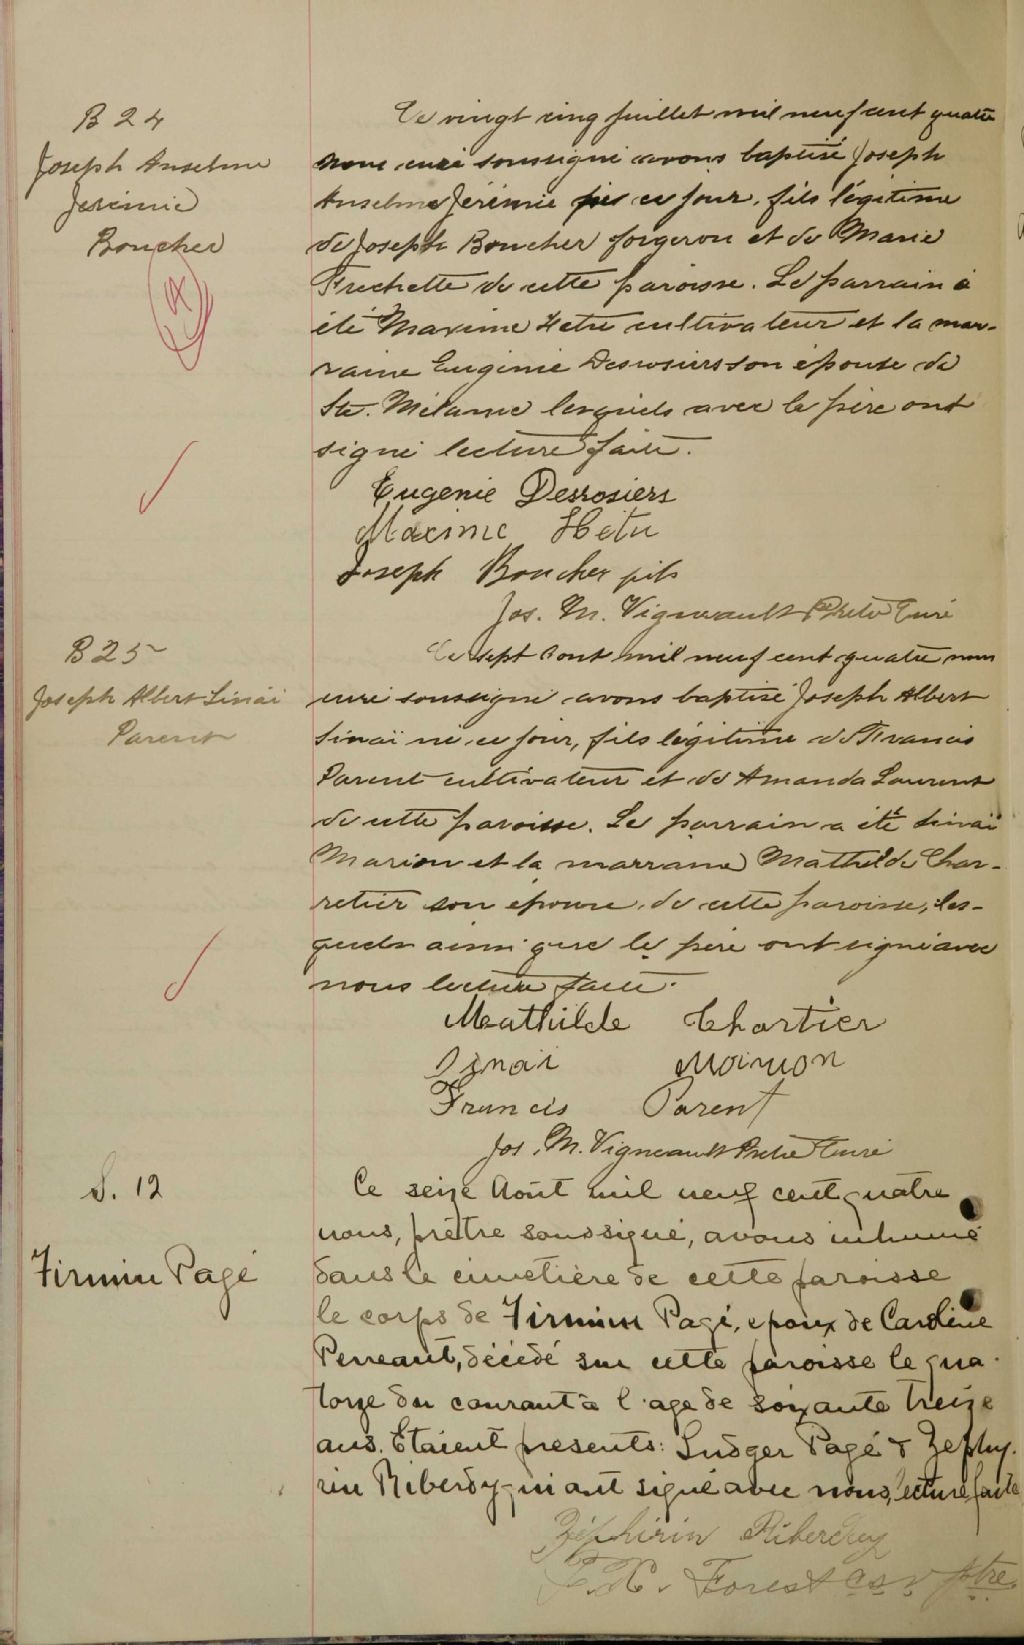 B 24
Joseph Anselme
Jérémie
Boucher
Le vingt cinq juillet mil neuf cent quatre
nous curé soussigné avons baptisé Joseph
Anselme Jérémie né ce jour, fils légitime
de Joseph Boucher forgeron et de Marie
Frechette de cette paroisse. Le parrain a
été Maxime Hetu cultivateur et la mar-
raine Eugénie Desrosiers son épouse de
Ste. Mélanie lesquels avec le père ont
signé lecture faite.
Eugenie Desrosiers
Maxime Hétu
Joseph Boucher fils
Jos. M. Vigneault Ptre Curé
B 25
Joseph Albert Sinaï
Parent
Le sept Aout mil neuf cent quatre nous
curé soussigné avons baptisé Joseph Albert
Sinaï né ce jour, fils légitime de Francis
Parent cultivateur et de Amanda Laurent
de cette paroisse. Le parrain a été Sinaï
Marion et la marraine Mathilde Char-
retier son épouse, de cette paroisse, les-
quels ainsi que le père ont signé avec
nous lecture faite.
Mathilde Chartier
Sinai Marion
Francis Parent
Jos. M. Vigneault Ptre Curé
S. 12
Firmin Pagé
Ce seize Août mil neuf cent quatre
nous, prêtre soussigné, avons inhumé
dans le cimetière de cette paroisse
le corps de Firmin Pagé, epoux de Caroline
Perreault, décédé sur cette paroisse le qua-
torze du courant à l'age de soixante treize
ans. Etaient presents: Ludger Pagé & Zephy-
rin Riberdy qui ont signé avec nous, lecture faite
Zéphirin Riberdy
F. X. Forest ptre.